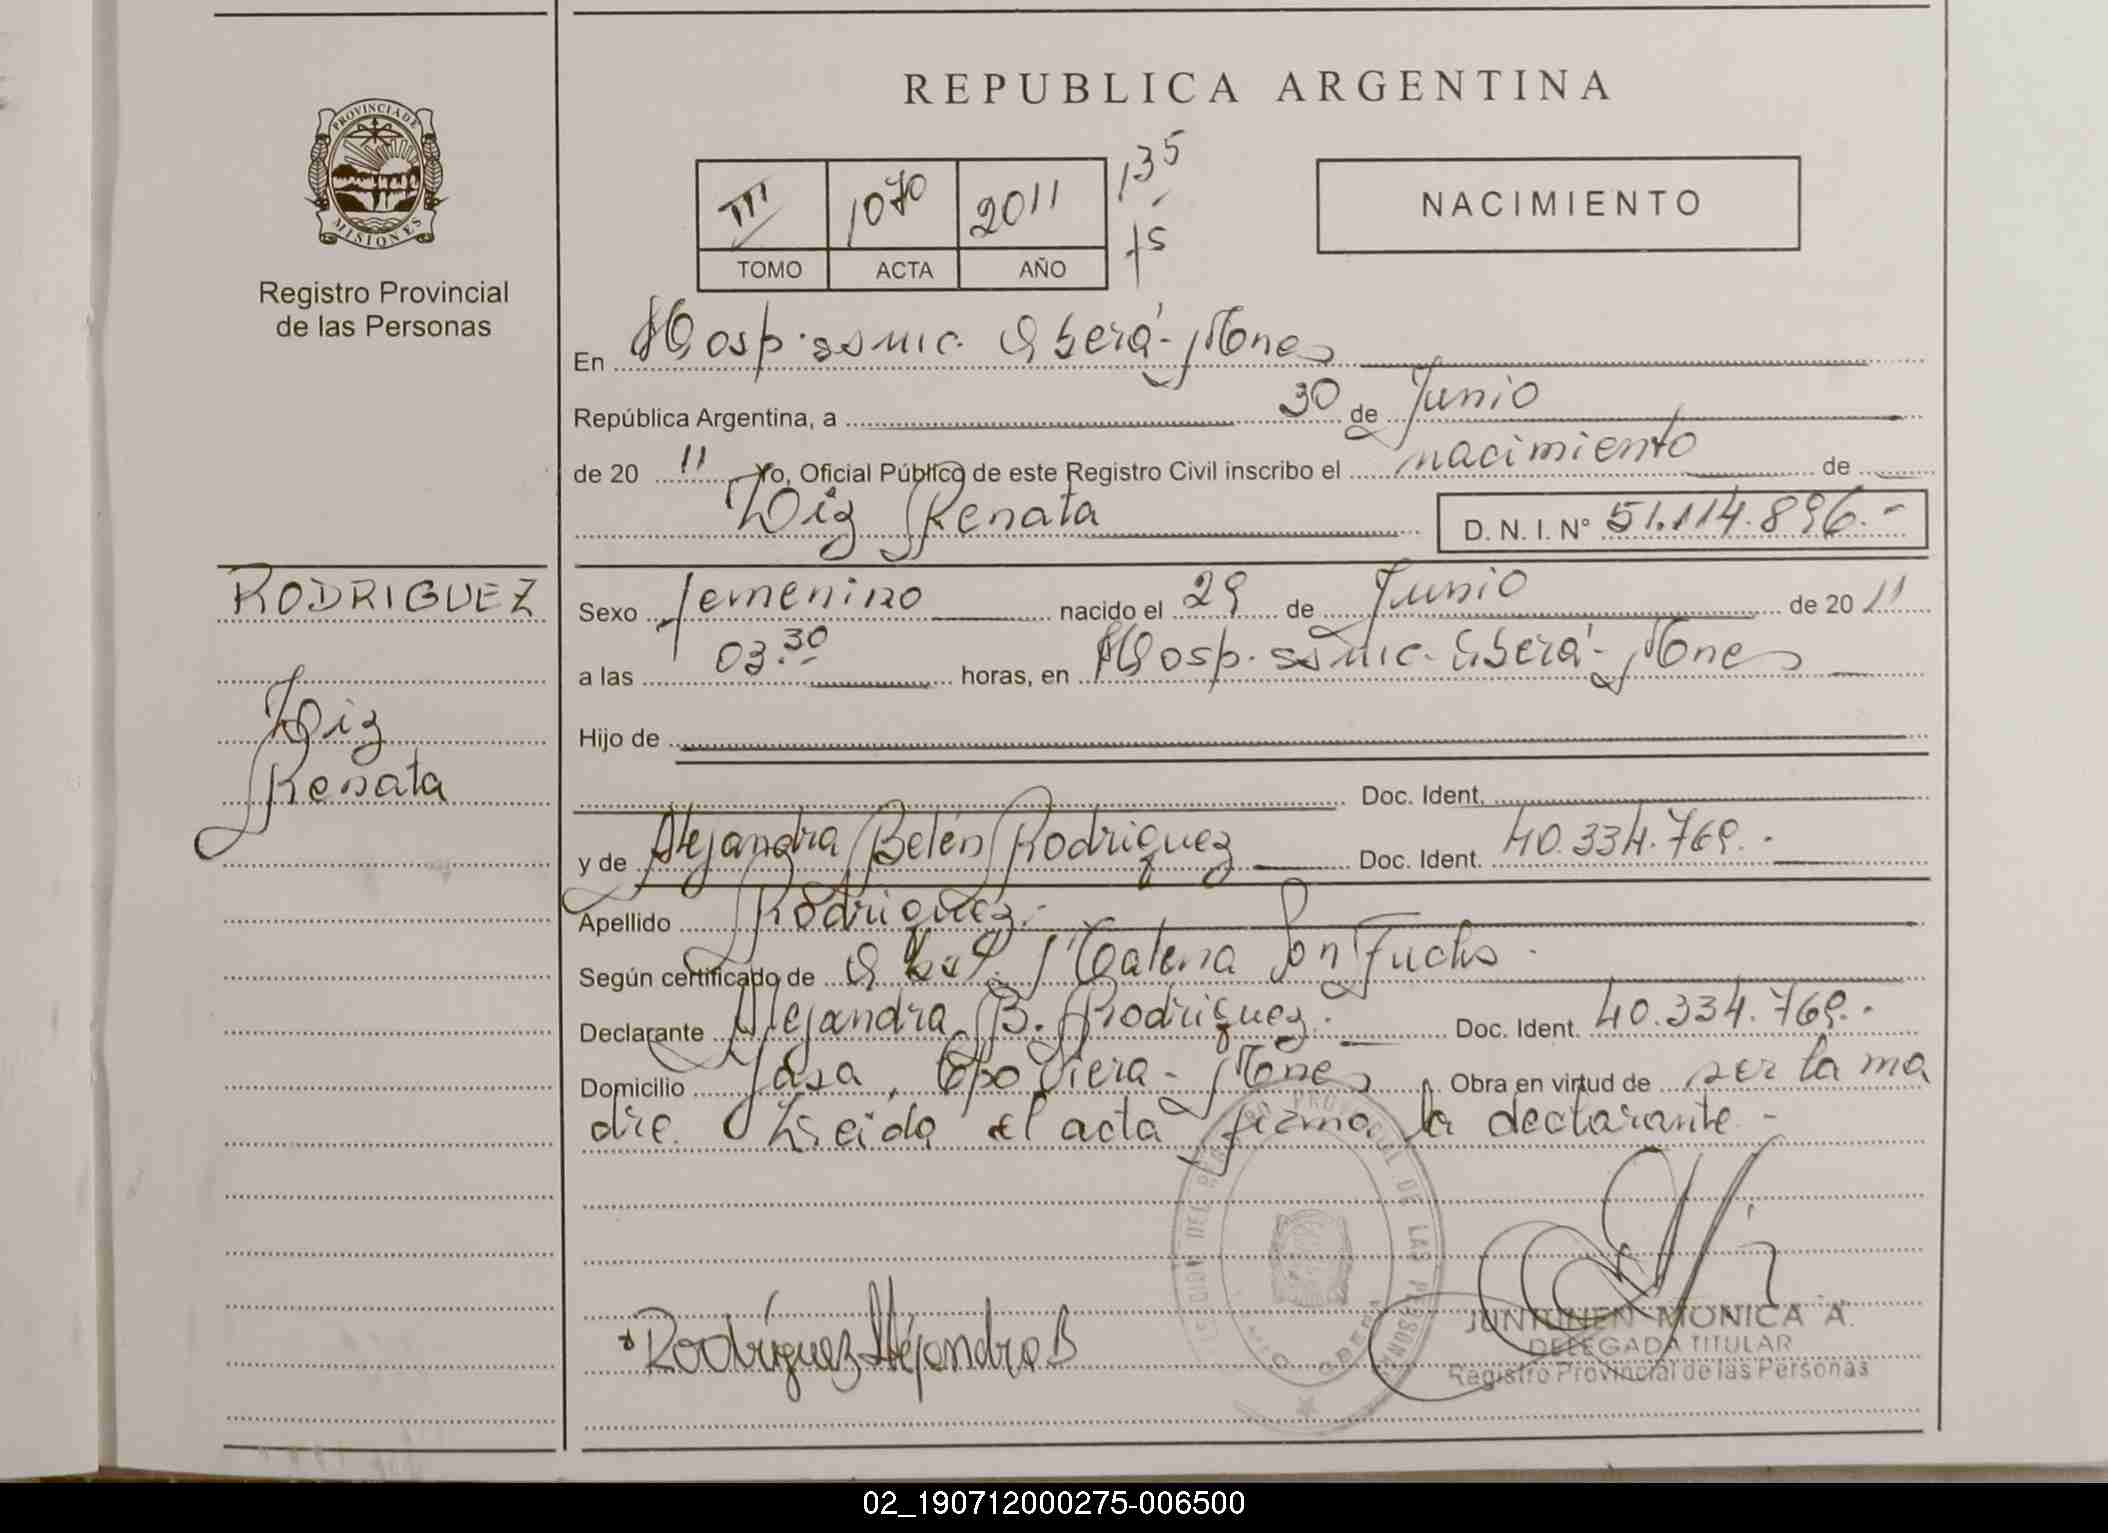 PROVINCIA DE
MISIONES
Registro Provincial
de las Personas
RODRIGUEZ
Liz
Renata
REPUBLICA ARGENTINA
III 1070 2011
TOMO ACTA AÑO
135
75
NACIMIENTO
En Hosp. ssmic. Oberá - Mnes
República Argentina, a 30 de Junio
de 20 11 Yo, Oficial Público de este Registro Civil inscribo el nacimiento de
Liz Renata D. N. I. N° 51.114.896.-
Sexo femenino nacido el 29 de Junio de 20 11
a las 03.30 horas, en Hosp. ssmic. Oberá - Mnes
Hijo de
Doc. Ident.
y de Alejandra Belén Rodriguez Doc. Ident. 40.334.769.-
Apellido Rodriguez.-
Según certificado de Obst. Fuchs
Declarante Alejandra B. Rodriguez.- Doc. Ident. 40.334.769.-
Domicilio Obra en virtud de ser la ma
dre. Leida el acta firma la declarante -
Rodríguez Alejandra B
JUNTUNEN MONICA A.
DELEGADA TITULAR
Registro Provincial de las Personas
02_190712000275-006500